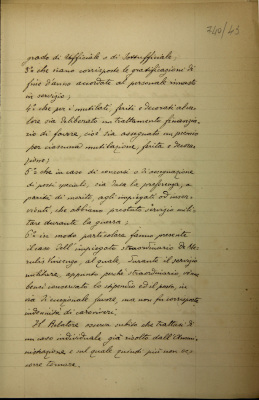 740/43
grado di Ufficiale o di Sottufficiale;
3° che siano corrisposte le gratificazioni di
fine d'anno accordate al personale rimasto
in servizio;
4° che per i mutilati, feriti e decorati al va-
lore sia deliberato un trattamento finanzia-
rio di favore, cioè sia assegnato un premio
per ciascuna mutilazione, ferita e decora-
zione;
5° che in caso di concorsi o di assegnazione
di posti speciali, sia data la preferenza, a
parità di merito, agli impiegati ed inser-
vienti, che abbiano prestato servizio mili-
tare durante la guerra;
6° in modo particolare fanno presente
il caso dell'impiegato straordinario
Lorenzo, al quale, durante il servizio
militare, appunto perchè straordinario
conservato lo stipendio ed il posto, in
via di eccezionale favore, ma non fu corrisposta
indennità di caroviveri.
Il Relatore osserva subito che trattasi di
un caso individuale già risolto dall'Ammi-
nistrazione e sul quale quindi più non oc-
corre tornare.